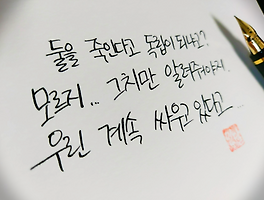 둘을 죽인다고 독립이 되냐고?
모르지.. 그치만 알려줘야지.
우린 계속 싸우고 있다고...